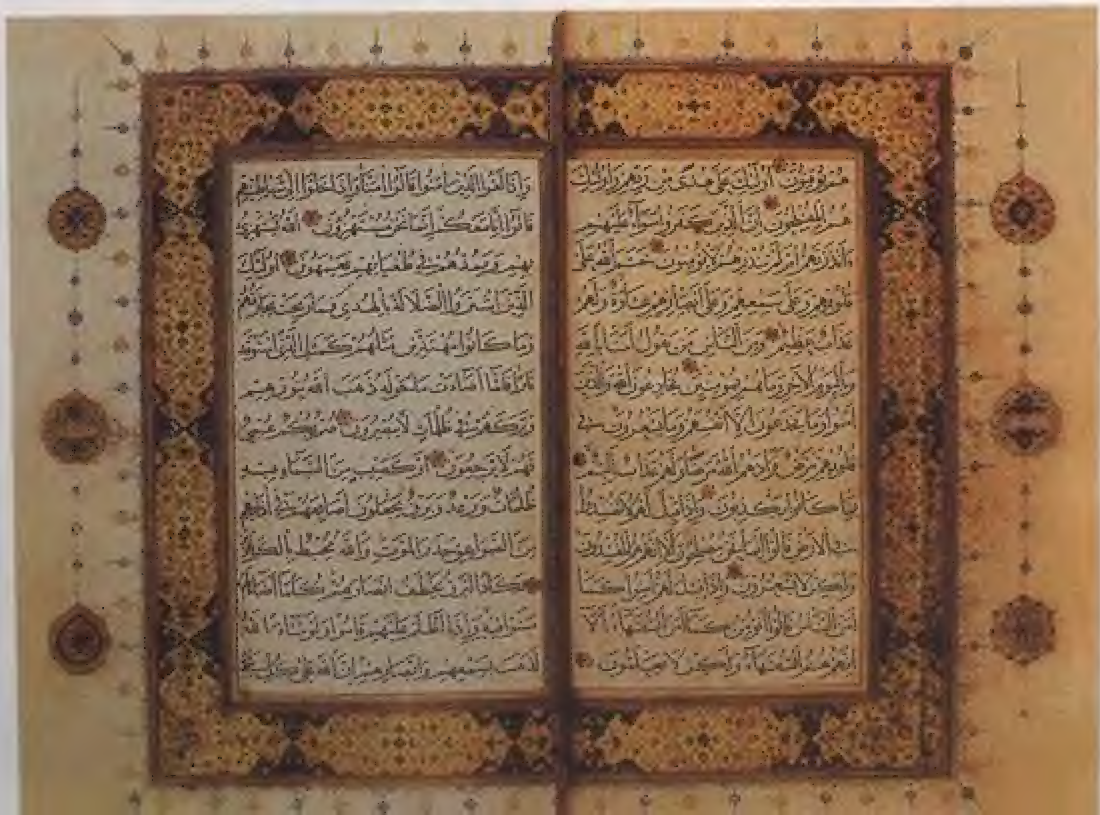 هُمْ يُوقِنُونَ أُولَئِكَ عَلَى هُدًى مِنْ رَبِّهِمْ وَأُولَئِكَ
هُمُ الْمُفْلِحُونَ إِنَّ الَّذِينَ كَفَرُوا سَوَاءٌ عَلَيْهِمْ
ءَأَنْذَرْتَهُمْ أَمْ لَمْ تُنْذِرْهُمْ لَا يُؤْمِنُونَ خَتَمَ اللَّهُ عَلَى
قُلُوبِهِمْ وَعَلَى سَمْعِهِمْ وَعَلَى أَبْصَارِهِمْ غِشَاوَةٌ وَلَهُمْ
عَذَابٌ عَظِيمٌ وَمِنَ النَّاسِ مَنْ يَقُولُ آمَنَّا بِاللَّهِ
وَبِالْيَوْمِ الْآخِرِ وَمَا هُمْ بِمُؤْمِنِينَ يُخَادِعُونَ اللَّهَ وَالَّذِينَ
آمَنُوا وَمَا يَخْدَعُونَ إِلَّا أَنْفُسَهُمْ وَمَا يَشْعُرُونَ فِي
قُلُوبِهِمْ مَرَضٌ فَزَادَهُمُ اللَّهُ مَرَضًا وَلَهُمْ عَذَابٌ أَلِيمٌ
بِمَا كَانُوا يَكْذِبُونَ وَإِذَا قِيلَ لَهُمْ لَا تُفْسِدُوا
فِي الْأَرْضِ قَالُوا إِنَّمَا نَحْنُ مُصْلِحُونَ أَلَا إِنَّهُمْ هُمُ الْمُفْسِدُونَ
وَلَكِنْ لَا يَشْعُرُونَ وَإِذَا قِيلَ لَهُمْ آمِنُوا كَمَا
آمَنَ النَّاسُ قَالُوا أَنُؤْمِنُ كَمَا آمَنَ السُّفَهَاءُ أَلَا
إِنَّهُمْ هُمُ السُّفَهَاءُ وَلَكِنْ لَا يَعْلَمُونَ
وَإِذَا لَقُوا الَّذِينَ آمَنُوا قَالُوا آمَنَّا وَإِذَا خَلَوْا إِلَى شَيَاطِينِهِمْ
قَالُوا إِنَّا مَعَكُمْ إِنَّمَا نَحْنُ مُسْتَهْزِءُونَ اللَّهُ يَسْتَهْزِئُ
بِهِمْ وَيَمُدُّهُمْ فِي طُغْيَانِهِمْ يَعْمَهُونَ أُولَئِكَ
الَّذِينَ اشْتَرَوُا الضَّلَالَةَ بِالْهُدَى فَمَا رَبِحَتْ تِجَارَتُهُمْ
وَمَا كَانُوا مُهْتَدِينَ مَثَلُهُمْ كَمَثَلِ الَّذِي اسْتَوْقَدَ
نَارًا فَلَمَّا أَضَاءَتْ مَا حَوْلَهُ ذَهَبَ اللَّهُ بِنُورِهِمْ
وَتَرَكَهُمْ فِي ظُلُمَاتٍ لَا يُبْصِرُونَ صُمٌّ بُكْمٌ عُمْيٌ
فَهُمْ لَا يَرْجِعُونَ أَوْ كَصَيِّبٍ مِنَ السَّمَاءِ فِيهِ
ظُلُمَاتٌ وَرَعْدٌ وَبَرْقٌ يَجْعَلُونَ أَصَابِعَهُمْ فِي آذَانِهِمْ
مِنَ الصَّوَاعِقِ حَذَرَ الْمَوْتِ وَاللَّهُ مُحِيطٌ بِالْكَافِرِينَ
يَكَادُ الْبَرْقُ يَخْطَفُ أَبْصَارَهُمْ كُلَّمَا أَضَاءَ لَهُمْ
مَشَوْا فِيهِ وَإِذَا أَظْلَمَ عَلَيْهِمْ قَامُوا وَلَوْ شَاءَ اللَّهُ
لَذَهَبَ بِسَمْعِهِمْ وَأَبْصَارِهِمْ إِنَّ اللَّهَ عَلَى كُلِّ شَيْءٍ